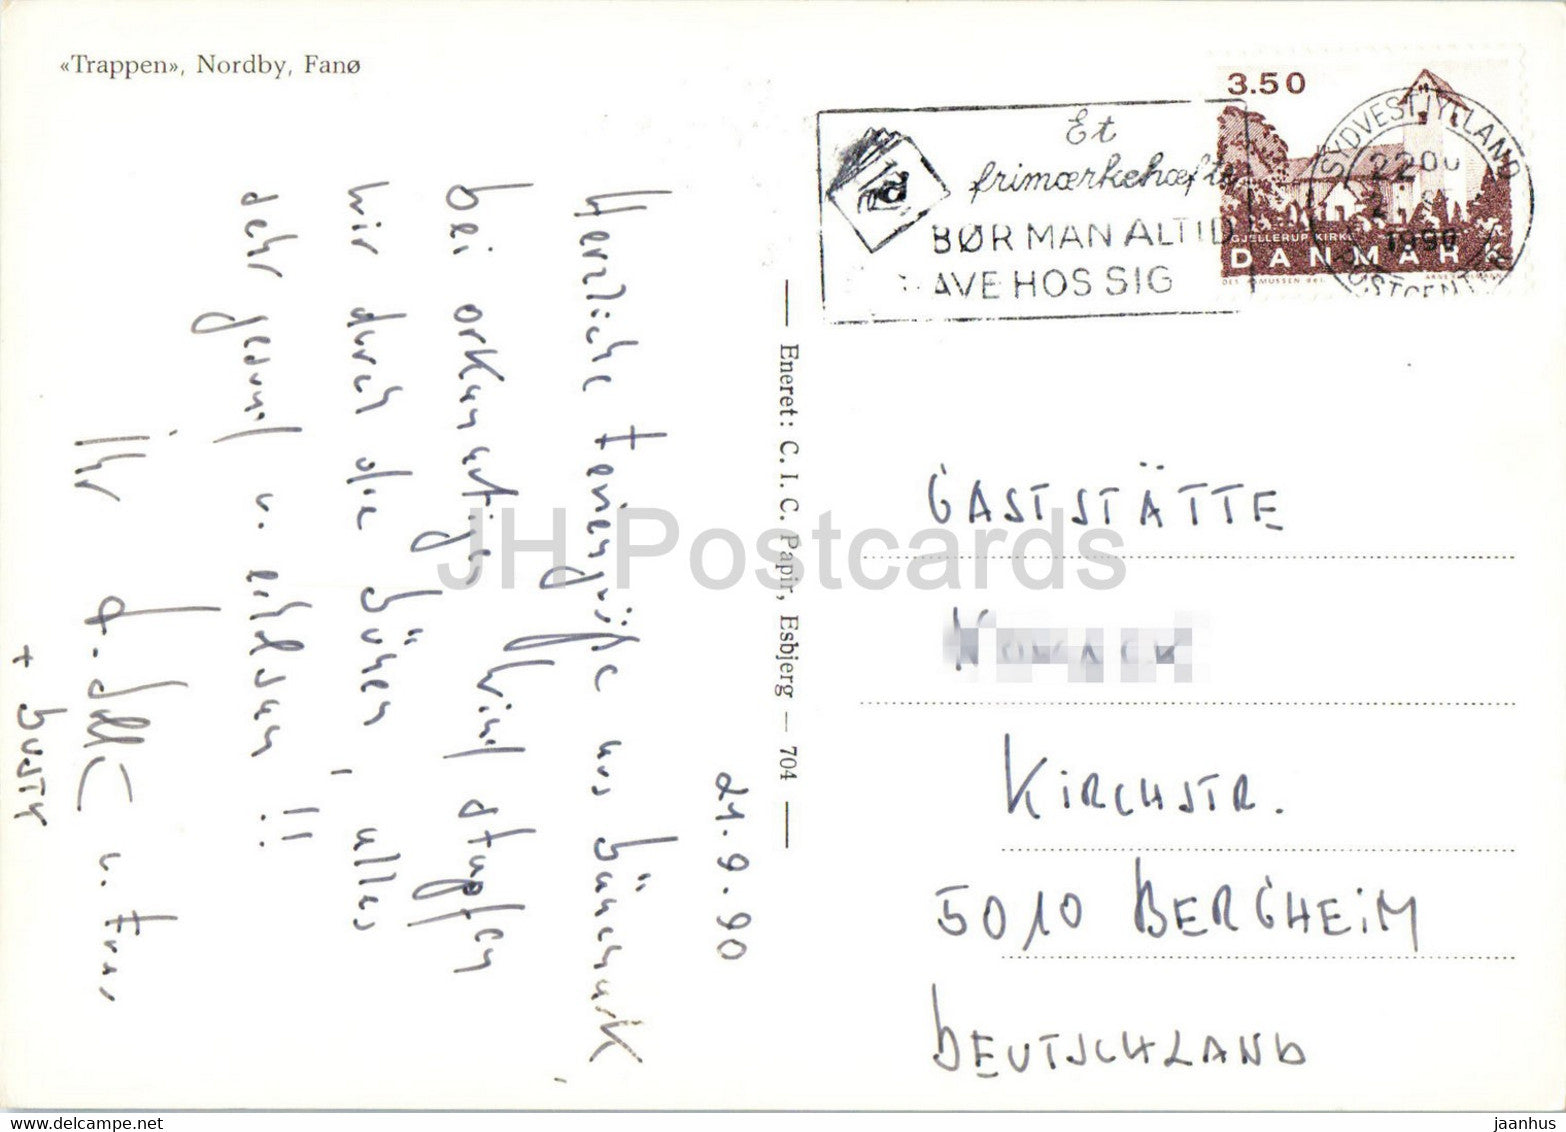 «Trappen», Nordby, Fanø
3.50
GJELLERUP KIRKE
DANMARK
SYDVESTJYLLAND
POSTCENTER
2200
1990
Et
frimærkehæfte
BØR MAN ALTID
AVE HOS SIG
21.9.90
Herzliche Feriengrüße aus Dänemark.
bei orkanartigen Wind stapfen
wir durch die Dünen, alles
sehr gesund u. erholsam!!
Ihr
u. Frau
+ Dusty
Eneret: C. I. C. Papir, Esbjerg — 704
GASTSTÄTTE
KIRCHSTR.
5010 BERGHEIM
DEUTSCHLAND
JH Postcards
www.delcampe.net
jaanhus